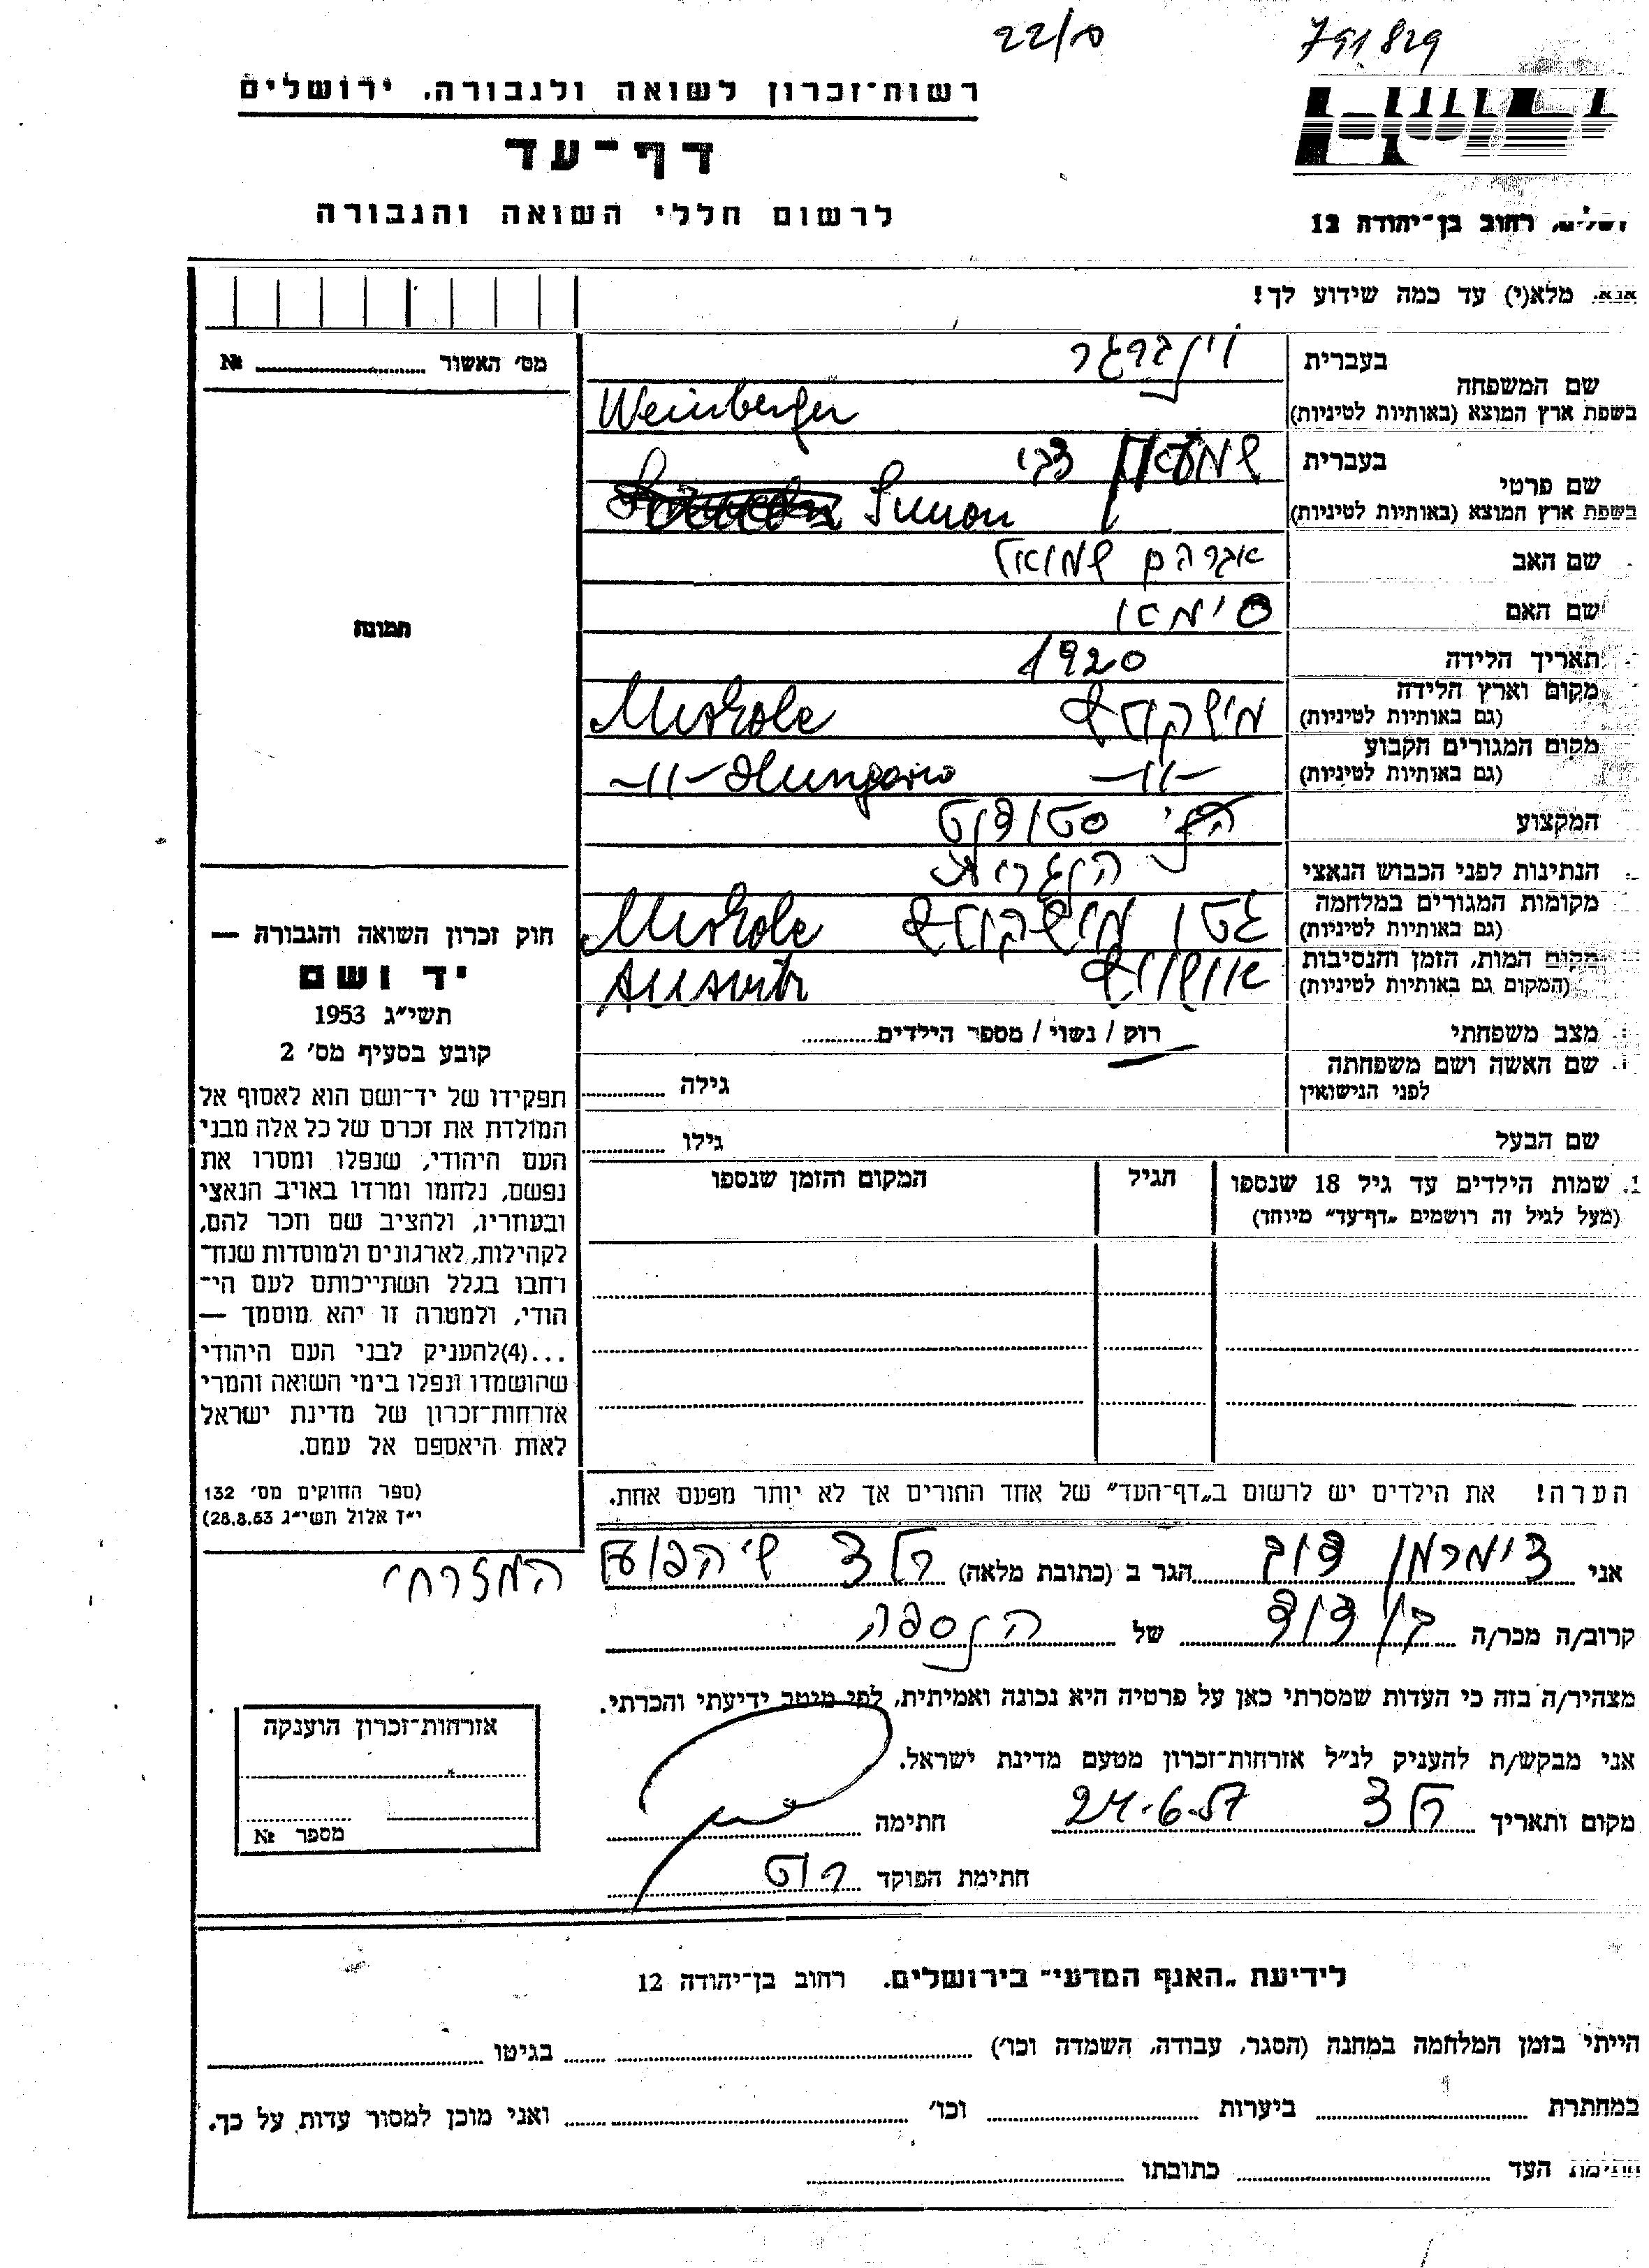 22/10 791829
רשות־זכרון לשואה ולגבורה, ירושלים
דף־עד
לרשום חללי השואה והגבורה
רחוב בן־יהודה 12
אנא, מלא(י) עד כמה שידוע לך!
מס׳ האשור № 
שם המשפחה
בעברית
וינברגר
בשפת ארץ המוצא (באותיות לטיניות)
Weinberger
שם פרטי
בעברית
שמעון צבי
בשפת ארץ המוצא (באותיות לטיניות)
Simon
שם האב
אברהם שמואל
שם האם
סימא
תאריך הלידה
1920
מקום וארץ הלידה
(גם באותיות לטיניות)
מישקולץ Miskolc
מקום המגורים הקבוע
(גם באותיות לטיניות)
-"- -"- Hungaria
המקצוע
סטודנט
הנתינות לפני הכבוש הנאצי
הונגרית
מקומות המגורים במלחמה
(גם באותיות לטיניות)
גטו מישקולץ Miskolc
מקום המות, הזמן והנסיבות
(המקום גם באותיות לטיניות)
אושוויץ
מצב משפחתי
רוק / נשוי / מספר הילדים
שם האשה ושם משפחתה
לפני הנישואין
גילה
שם הבעל
גילו
שמות הילדים עד גיל 18 שנספו
(מעל לגיל זה רושמים „דף־עד״ מיוחד)
הגיל
המקום והזמן שנספו
הערה! את הילדים יש לרשום ב„דף־העד״ של אחד ההורים אך לא יותר מפעם אחת.
תמונה
חוק זכרון השואה והגבורה —
יד ושם
תשי״ג 1953
קובע בסעיף מס׳ 2
תפקידו של יד־ושם הוא לאסוף אל
המולדת את זכרם של כל אלה מבני
העם היהודי, שנפלו ומסרו את
נפשם, נלחמו ומרדו באויב הנאצי
ובעוזריו, ולהציב שם וזכר להם,
לקהילות, לארגונים ולמוסדות שנח־
רבו בגלל השתייכותם לעם הי־
הודי, ולמטרה זו יהא מוסמך —
...(4) להעניק לבני העם היהודי
שהושמדו ונפלו בימי השואה והמרי
אזרחות־זכרון של מדינת ישראל
לאות היאספם אל עמם.
(ספר החוקים מס׳ 132
י״ז אלול תשי״ג 28.8.53)
אני צימרמן דוב הגר ב (כתובת מלאה) הפועל המזרחי
קרוב/ה מכר/ה בן דוד של הנספה
מצהיר/ה בזה כי העדות שמסרתי כאן על פרטיה היא נכונה ואמיתית, לפי מיטב ידיעתי והכרתי.
אני מבקש/ת להעניק לנ״ל אזרחות־זכרון מטעם מדינת ישראל.
מקום ותאריך 24.6.57 חתימה
חתימת הפוקד
אזרחות־זכרון הוענקה
מספר №
לידיעת „האגף המדעי״ בירושלים. רחוב בן־יהודה 12
הייתי בזמן המלחמה במחנה (הסגר, עבודה, השמדה וכו׳) בגיטו
במחתרת ביערות וכו׳ ואני מוכן למסור עדות על כך.
חתימת העד כתובתו